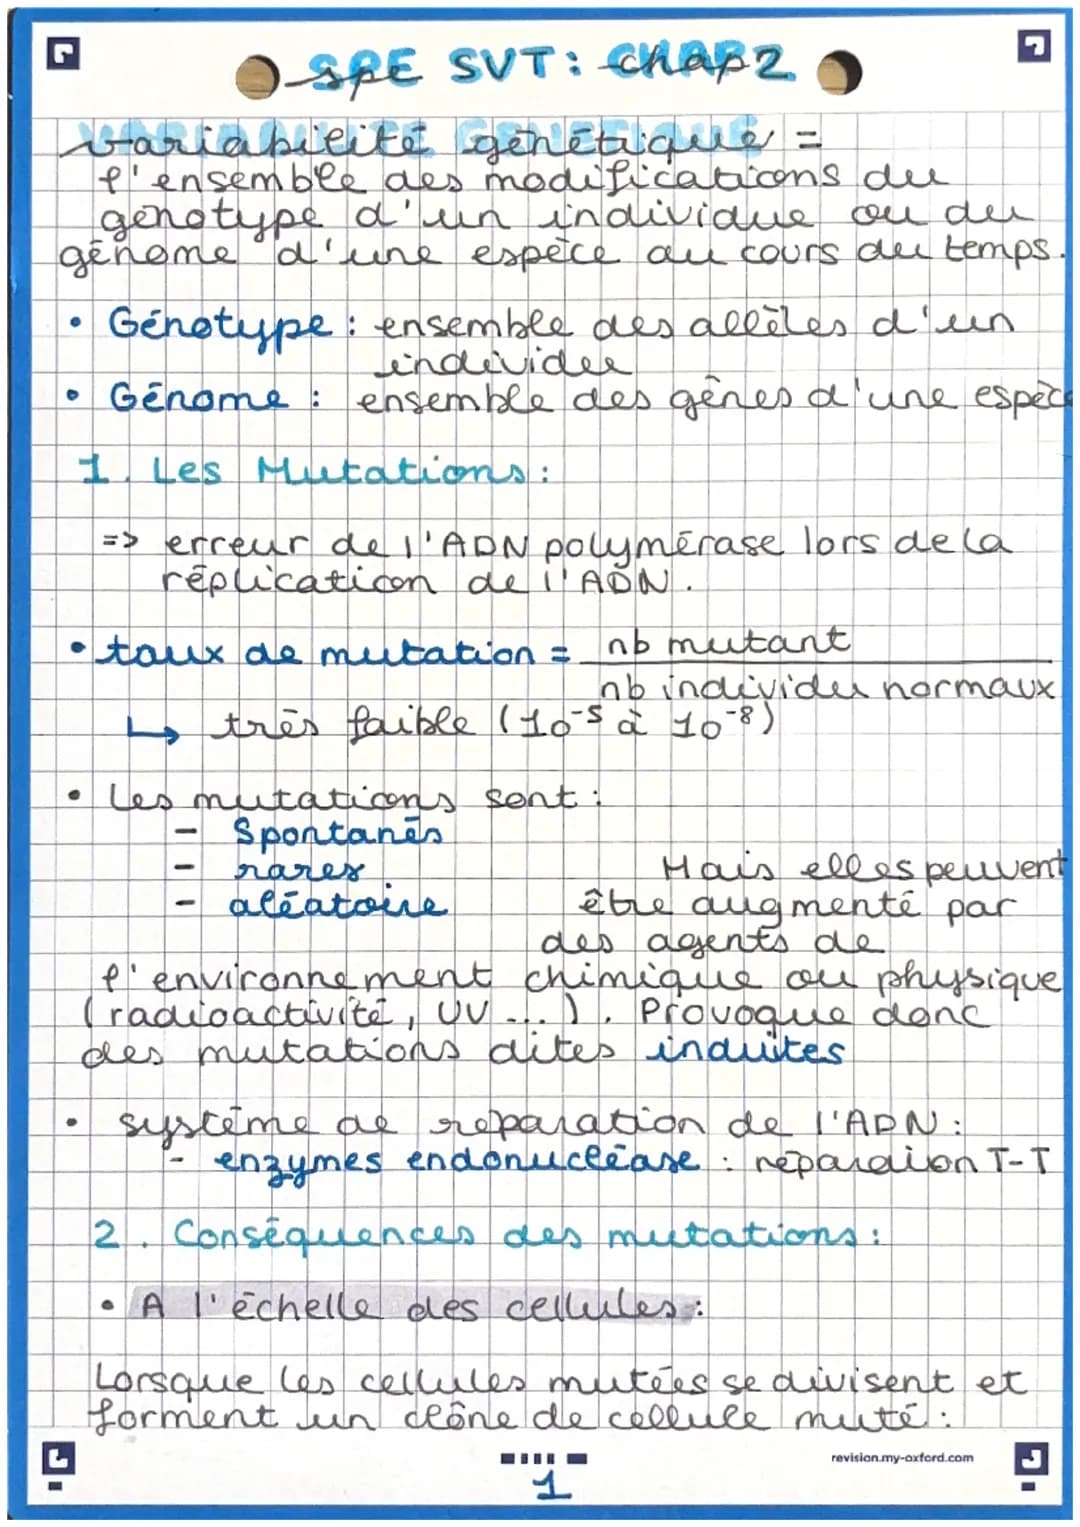 SPE SVT: chap2
variabilité génétique =
l'ensemble des modifications du
génotype d'un individue ou du
génome d'une espèce au cours du temps.
• Génotype : ensemble des allèles d'un
individu
• Génome : ensemble des gènes d'une espèce
1. Les Mutations :
=> erreur de l'ADN polymérase lors de la
réplication de l'ADN.
• taux de mutation = nb mutant
nb individu normaux
↳ très faible (10⁻⁵ à 10⁻⁸)
• Les mutations sont :
- Spontanés
- rares
- aléatoire
Mais elles peuvent
être augmenté par
des agents de
l'environnement chimique ou physique
(radioactivité, UV ...). Provoque donc
des mutations dites induites
• système de réparation de l'ADN :
- enzymes endonucléase : réparaion T-T
2. Conséquences des mutations :
• A l'échelle des cellules :
Lorsque les cellules mutées se divisent et
forment un clône de cellule muté :
revision.my-oxford.com
1